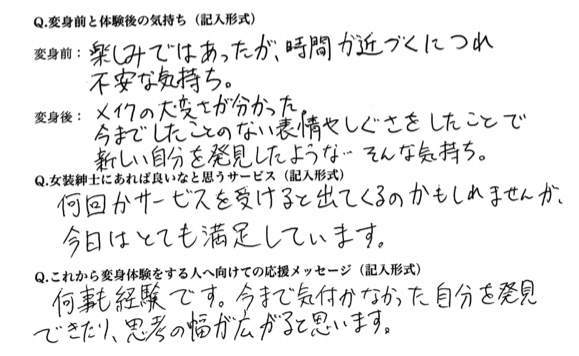 Q.変身前と体験後の気持ち（記入形式）
変身前：楽しみではあったが、時間が近づくにつれ
不安な気持ち。
変身後：メイクの大変さが分かった。
今までしたことのない表情やしぐさをしたことで
新しい自分を発見したような… そんな気持ち。
Q.女装紳士にあれば良いなと思うサービス（記入形式）
何回かサービスを受けると出てくるのかもしれませんが、
今日はとても満足しています。
Q.これから変身体験をする人へ向けての応援メッセージ（記入形式）
何事も経験です。今まで気付かなかった自分を発見
できたり、思考の幅が広がると思います。